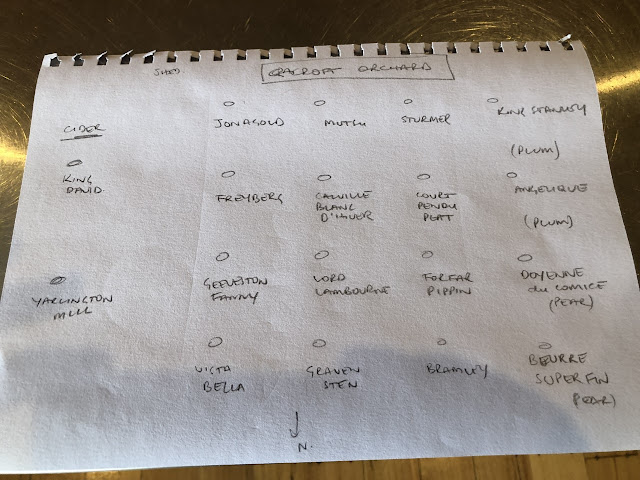 SHED
ORCHARD
CIDER
JONAGOLD
MUTSU
STURMER
KING STANLEY
(PLUM)
KING
DAVID.
FREYBERG
CALVILLE
BLANC
D'HIVER
COURT
PENDU
PLAT
ANGELIQUE
(PLUM)
YARLINGTON
MILL
GEEVESTON
FANNY
LORD
LAMBOURNE
FORFAR
PIPPIN
DOYENNE
du COMICE
(PEAR)
VISTA
BELLA
GRAVEN
STEN
BRAMLEY
BEURRE
SUPERFIN
PEAR)
N.